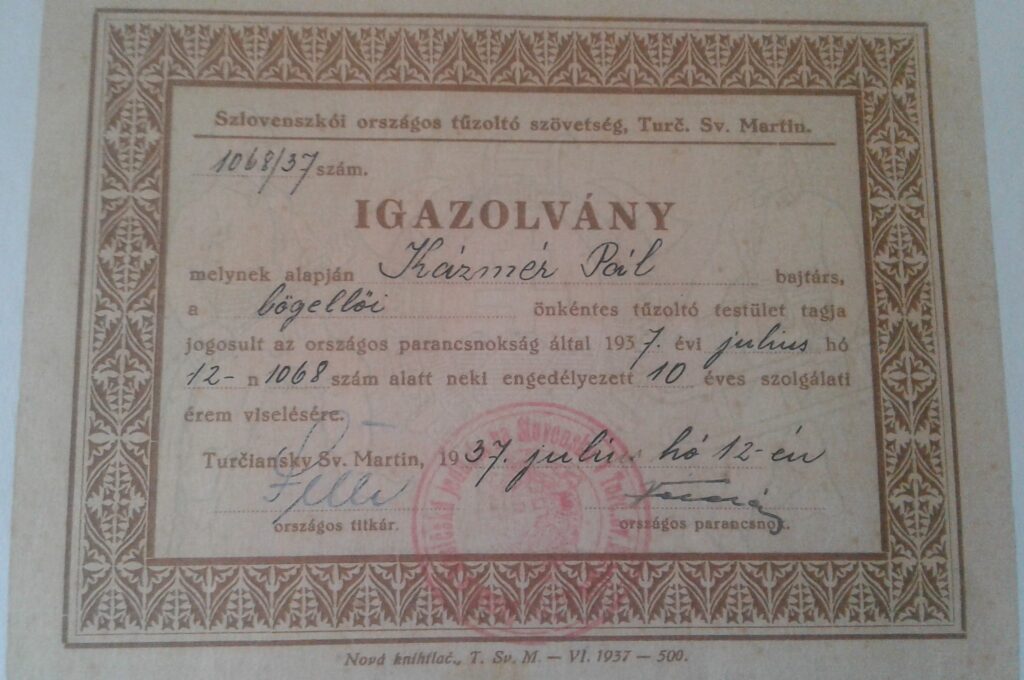 Szlovenszkói országos tűzoltó szövetség, Turč. Sv. Martin.
1068/37 szám.
IGAZOLVÁNY
melynek alapján Kázmér Pál bajtárs,
a bögellői önkéntes tűzoltó testület tagja
jogosult az országos parancsnokság által 1937. évi julius hó
12-n 1068 szám alatt neki engedélyezett 10 éves szolgálati
érem viselésére.
Turčiansky Sv. Martin, 1937. julius hó 12-én
országos titkár. országos parancsnok.
Nová knihtlač., T. Sv. M. — VI. 1937 — 500.